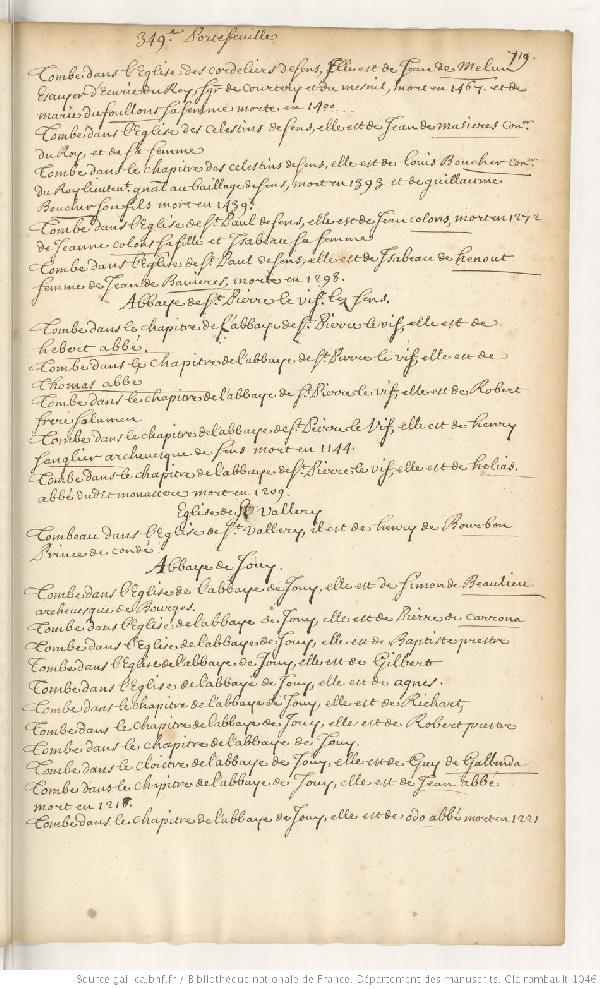 349.e Portefeuille
719.
Tombe dans l'Eglise des cordeliers de sens, Elle est de Jean de Melun
Escuyer d'Ecurie du Roy sgr. de Courtery et du mesnil, mort en 1467. et de
marie du foullons sa femme morte en 1400
Tombe dans l'Eglise des celestins de sens, elle est de Jean de masieres Con.er
du Roy, et de sa femme
Tombe dans le chapitre des celestins de sens, elle est de louis Boucher con.er
du Roy lieutent. gnal au baillage de sens, mort en 1393 et de guillaume
Boucher son fils mort en 1439.
Tombe dans l'Eglise de St. Paul de sens, elle est de Jean colons, mort en 1272
de Jeanne colons sa fille et Isabeau sa femme
Tombe dans l'Eglise de St. Paul de sens, elle est de Isabeau de henout
femme de Jean de Banieres, morte en 1298.
Abbaye de St. Pierre le vif, lez sens.
Tombe dans le chapitre de l'abbaye de St. Pierre le vif, elle est de
hebert abbé.
Tombe dans le chapitre de l'abbaye de St. Pierre le vif, elle est de
Thomas abbé
Tombe dans le chapitre de l'abbaye de St. Pierre le vif, elle est de Robert
frere salamen
Tombe dans le chapitre de l'abbaye de St. Pierre le Vif, elle est de henry
sanglier archeuesque de sens mort en 1144.
Tombe dans le chapitre de l'abbaye de St. Pierre le vif, elle est de helias.
abbé dudit monastere mort en 1209.
Eglise de St. Vallery
Tombeau dans l'Eglise de St. Vallery, il est de henry de Bourbon
Prince de condé.
Abbaye de Jouy.
Tombe dans l'Eglise de l'abbaye de Jouy, elle est de Simon de Beaulieu
archeuesque de Bourges.
Tombe dans l'Eglise de l'abbaye de Jouy, elle est de Pierre de carcona
Tombe dans l'Eglise de l'abbaye de Jouy, elle est de Baptiste prestre
Tombe dans l'Eglise de l'abbaye de Jouy, elle est de Gilbert
Tombe dans l'Eglise de l'abbaye de Jouy, elle est de agnes.
Tombe dans le chapitre de l'abbaye de Jouy, elle est de Richart
Tombe dans le chapitre de l'abbaye de Jouy, elle est de Robert prestre
Tombe dans le chapitre de l'abbaye de Jouy.
Tombe dans le cloistre de l'abbaye de Jouy, elle est de Guy de Gallanda
Tombe dans le chapitre de l'abbaye de Jouy, elle est de Jean abbé
mort en 1218.
Tombe dans le chapitre de l'abbaye de Jouy, elle est de odo abbé mort en 1221
Source gallica.bnf.fr / Bibliothèque nationale de France. Département des manuscrits. Clairambault 1046